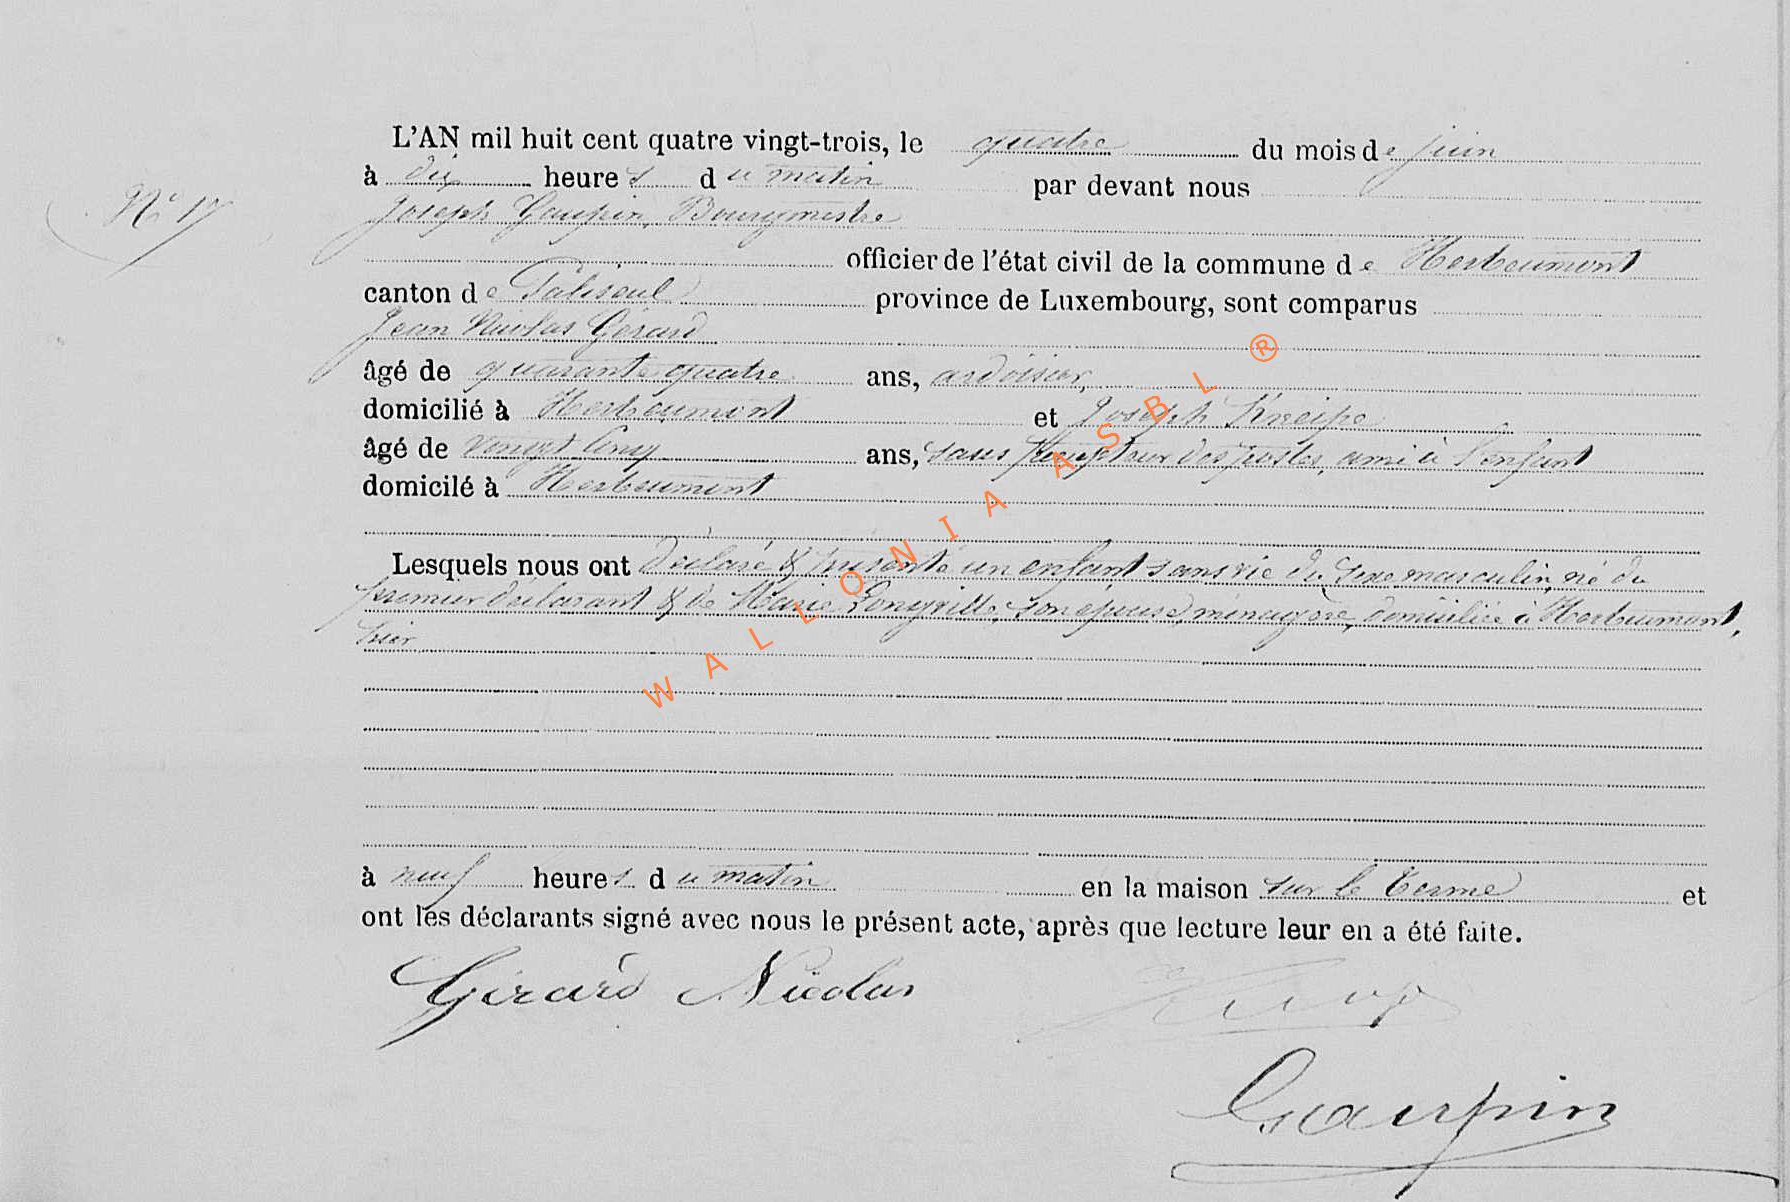 L'AN mil huit cent quatre vingt-trois, le quatre du mois de juin
à dix heures du matin par devant nous
N° 17
Joseph Gaupin, Bourgmestre
officier de l'état civil de la commune de Herbeumont
canton de Paliseul province de Luxembourg, sont comparus
Jean Nicolas Gérard
âgé de quarante quatre ans, ardoisier,
domicilié à Herbeumont et Joseph Kneipe
âgé de vingt cinq ans, sous percepteur des postes, ami à l'enfant
domicilé à Herbeumont
Lesquels nous ont déclaré & présenté un enfant sans vie du sexe masculin, né du
premier déclarant & de Marie Longville, son épouse, ménagère, domiciliée à Herbeumont,
hier
à neuf heures du matin en la maison sur le Terme et
ont les déclarants signé avec nous le présent acte, après que lecture leur en a été faite.
Gérard Nicolas
Gaupin
WALLONIA ASBL ®